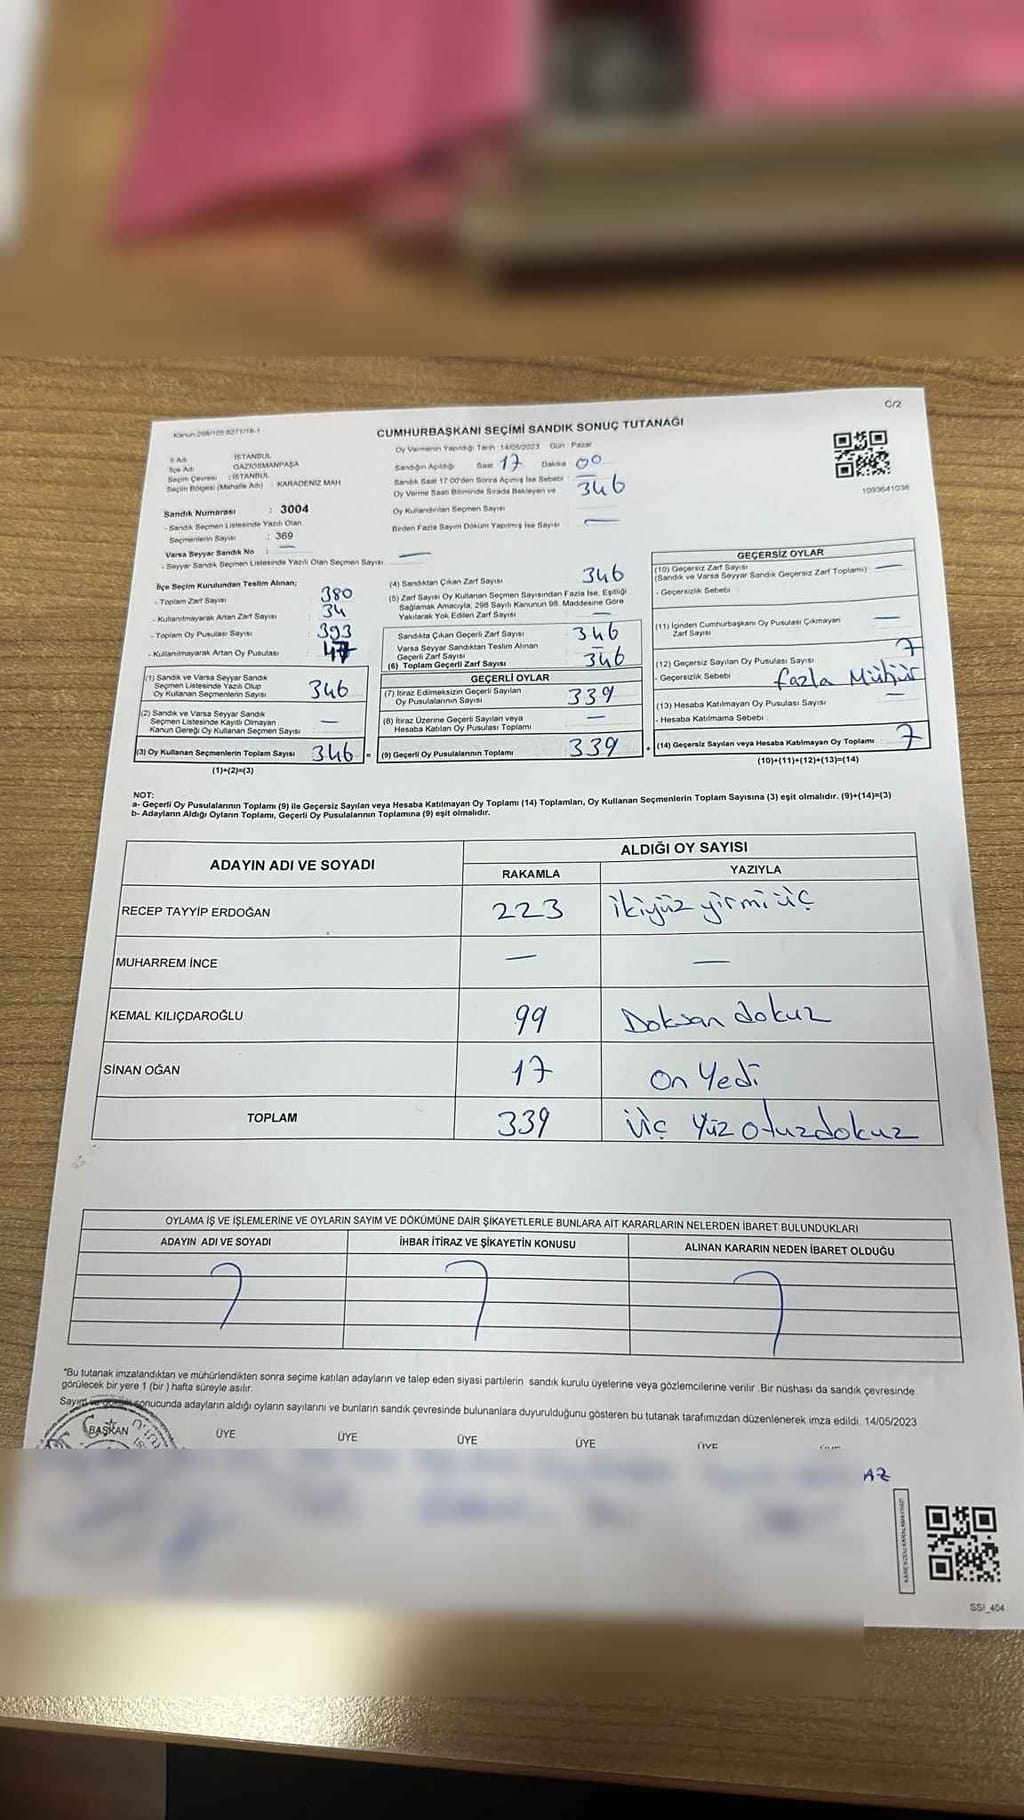 C/2
Kanun:298/105.6271/18-1
CUMHURBAŞKANI SEÇİMİ SANDIK SONUÇ TUTANAĞI
İl Adı : İSTANBUL
İlçe Adı : GAZİOSMANPAŞA
Seçim Çevresi : İSTANBUL
Seçim Bölgesi (Mahalle Adı) : KARADENİZ MAH
Sandık Numarası : 3004
- Sandık Seçmen Listesinde Yazılı Olan
Seçmenlerin Sayısı : 369
Varsa Seyyar Sandık No : —
- Seyyar Sandık Seçmen Listesinde Yazılı Olan Seçmen Sayısı —
Oy Vermenin Yapıldığı Tarih :14/05/2023 Gün : Pazar
Sandığın Açıldığı Saat 17 Dakika 00
Sandık Saat 17:00'den Sonra Açmış İse Sebebi
Oy Verme Saati Bitiminde Sırada Bekleyen ve 346
Oy Kullandırılan Seçmen Sayısı
Birden Fazla Sayım Döküm Yapılmış İse Sayısı —
1093641036
İlçe Seçim Kurulundan Teslim Alınan;
- Toplam Zarf Sayısı 380
- Kullanılmayarak Artan Zarf Sayısı 34
- Toplam Oy Pusulası Sayısı 393
- Kullanılmayarak Artan Oy Pusulası 47
(1) Sandık ve Varsa Seyyar Sandık
Seçmen Listesinde Yazılı Olup
Oy Kullanan Seçmenlerin Sayısı 346
(2) Sandık ve Varsa Seyyar Sandık
Seçmen Listesinde Kayıtlı Olmayan
Kanun Gereği Oy Kullanan Seçmen Sayısı —
(3) Oy Kullanan Seçmenlerin Toplam Sayısı 346 =
(1)+(2)=(3)
(4) Sandıktan Çıkan Zarf Sayısı 346
(5) Zarf Sayısı Oy Kullanan Seçmen Sayısından Fazla İse, Eşitliği
Sağlamak Amacıyla, 298 Sayılı Kanunun 98. Maddesine Göre
Yakılarak Yok Edilen Zarf Sayısı —
Sandıkta Çıkan Geçerli Zarf Sayısı 346
Varsa Seyyar Sandıktan Teslim Alınan
Geçerli Zarf Sayısı —
(6) Toplam Geçerli Zarf Sayısı 346
GEÇERLİ OYLAR
(7) İtiraz Edilmeksizin Geçerli Sayılan
Oy Pusulalarının Sayısı 339
(8) İtiraz Üzerine Geçerli Sayılan veya
Hesaba Katılan Oy Pusulası Toplamı —
(9) Geçerli Oy Pusulalarının Toplamı 339 +
GEÇERSİZ OYLAR
(10) Geçersiz Zarf Sayısı —
(Sandık ve Varsa Seyyar Sandık Geçersiz Zarf Toplamı)
- Geçersizlik Sebebi
(11) İçinden Cumhurbaşkanı Oy Pusulası Çıkmayan
Zarf Sayısı —
(12) Geçersiz Sayılan Oy Pusulası Sayısı 7
- Geçersizlik Sebebi : fazla Mühür
(13) Hesaba Katılmayan Oy Pusulası Sayısı —
- Hesaba Katılmama Sebebi :
(14) Geçersiz Sayılan veya Hesaba Katılmayan Oy Toplamı 7
(10)+(11)+(12)+(13)=(14)
NOT:
a- Geçerli Oy Pusulalarının Toplamı (9) ile Geçersiz Sayılan veya Hesaba Katılmayan Oy Toplamı (14) Toplamları, Oy Kullanan Seçmenlerin Toplam Sayısına (3) eşit olmalıdır. (9)+(14)=(3)
b- Adayların Aldığı Oyların Toplamı, Geçerli Oy Pusulalarının Toplamına (9) eşit olmalıdır.
ADAYIN ADI VE SOYADI
ALDIĞI OY SAYISI
RAKAMLA YAZIYLA
RECEP TAYYİP ERDOĞAN 223 ikiyüz yirmi üç
MUHARREM İNCE — —
KEMAL KILIÇDAROĞLU 99 Doksan dokuz
SİNAN OĞAN 17 On Yedi
TOPLAM 339 üç yüz otuzdokuz
OYLAMA İŞ VE İŞLEMLERİNE VE OYLARIN SAYIM VE DÖKÜMÜNE DAİR ŞİKAYETLERLE BUNLARA AİT KARARLARIN NELERDEN İBARET BULUNDUKLARI
ADAYIN ADI VE SOYADI İHBAR İTİRAZ VE ŞİKAYETİN KONUSU ALINAN KARARIN NEDEN İBARET OLDUĞU
*Bu tutanak imzalandıktan ve mühürlendikten sonra seçime katılan adayların ve talep eden siyasi partilerin sandık kurulu üyelerine veya gözlemcilerine verilir .Bir nüshası da sandık çevresinde
görülecek bir yere 1 (bir ) hafta süreyle asılır.
Sayım ve döküm sonucunda adayların aldığı oyların sayılarını ve bunların sandık çevresinde bulunanlara duyurulduğunu gösteren bu tutanak tarafımızdan düzenlenerek imza edildi. 14/05/2023
BAŞKAN ÜYE ÜYE ÜYE ÜYE ÜYE
AZ
SSI_404